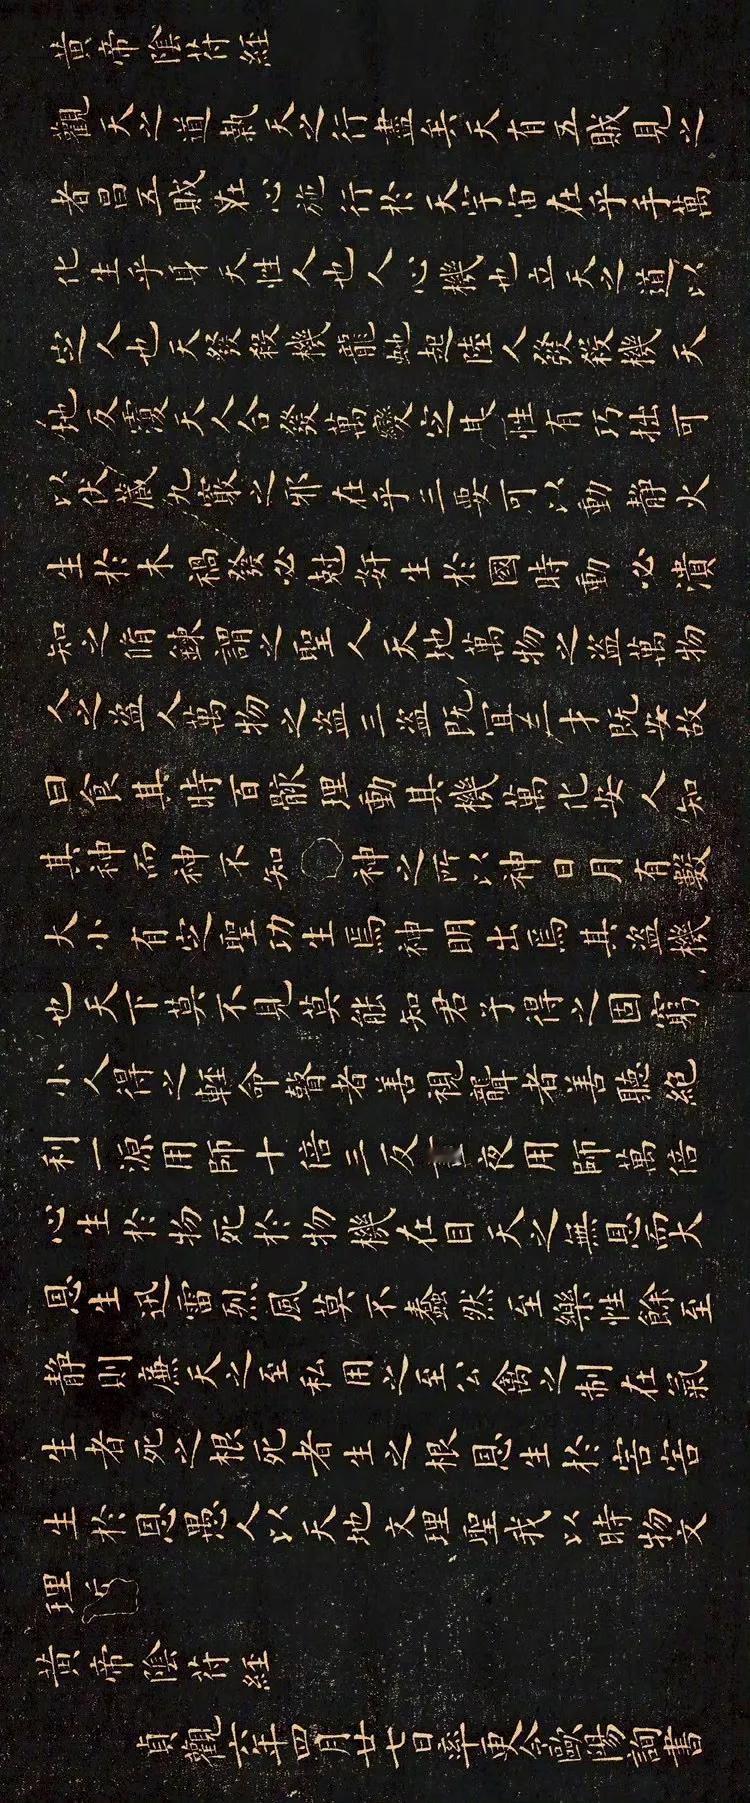 黃帝陰符經
觀天之道執天之行盡矣天有五賊見之
者昌五賊在心施行於天宇宙在乎手萬
化生乎身天性人也人心機也立天之道以
定人也天發殺機龍虵起陸人發殺機天
地反覆天人合發萬變定基性有巧拙可
以伏藏九竅之邪在乎三要可以動靜火
生於木禍發必尅奸生於國時動必潰
知之脩鍊謂之聖人天地萬物之盜萬物
人之盜人萬物之盜三盜既宜三才既安故
曰食其時百骸理動其機萬化安人知
其神而神不知神之所以神日月有數
大小有定聖功生焉神明出焉其盜機
也天下莫不見莫能知君子得之固窮
小人得之輕命瞽者善視聾者善聽絕
利一源用師十倍三反夜用師萬倍
心生於物死於物機在目天之無恩而大
恩生迅雷烈風莫不蠢然至樂性餘至
靜則廉天之至私用之至公禽之制在氣
生者死之根死者生之根恩生於害害
生於恩愚人以天地文理聖我以時物文
理
黃帝陰符經
貞觀六年四月廿七日率更令歐陽詢書